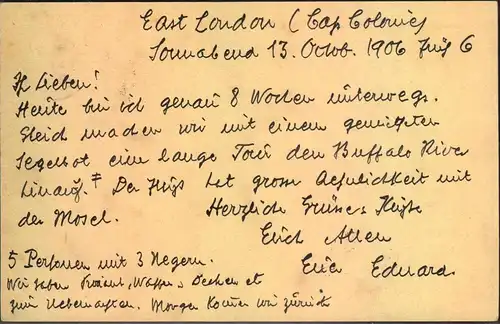 East London (Cap Colonie)
Sonnabend 13. Octob. 1906 früh 6
Ihr Lieben!
Heute bin ich genau 8 Wochen unterwegs.
Gleich machen wir mit einem gemieteten
Segelboot eine lange Tour den Buffalo River
hinauf. ‡ Der Fluss hat grosse Aehnlichkeit mit
der Mosel. Herzliche Grüsse &
Erich
5 Personen mit 3 Negern. Euer Eduard.
Wir haben Proviant, Waffen, Decken et
zum Uebernachten. Morgen kommen wir zurück